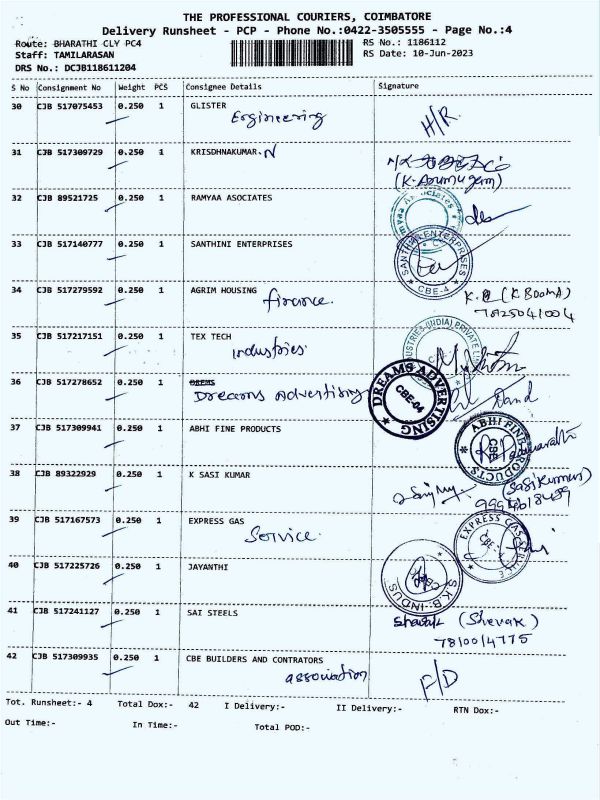 THE PROFESSIONAL COURIERS, COIMBATORE
Delivery Runsheet - PCP - Phone No.:0422-3505555 - Page No.:4
Route: BHARATHI CLY PC4 RS No.: 1186112
Staff: TAMILARASAN RS Date: 10-Jun-2023
DRS No.: DCJB118611204
S No Consignment No Weight PCS Consignee Details Signature
30 CJB 517075453 0.250 1 GLISTER
Engineering H/R.
31 CJB 517309729 0.250 1 KRISDHNAKUMAR.N
(K.Arumugam)
32 CJB 89521725 0.250 1 RAMYAA ASOCIATES
33 CJB 517140777 0.250 1 SANTHINI ENTERPRISES
SANTHINI ENTERPRISES
CBE-4
34 CJB 517279592 0.250 1 AGRIM HOUSING
finance. K.B (K BOOMA)
7825041004
35 CJB 517217151 0.250 1 TEX TECH
industries. INDUSTRIES (INDIA) PRIVATE
36 CJB 517278652 0.250 1 DREMS
Dreams Advertising
DREAMS ADVERTISING
CBE-04
37 CJB 517309941 0.250 1 ABHI FINE PRODUCTS
ABHI FINE PRODUCTS
CBE
38 CJB 89322929 0.250 1 K SASI KUMAR
(Sasikumar)
39 CJB 517167573 0.250 1 EXPRESS GAS
Service. EXPRESS GAS SERVICE
CBE
40 CJB 517225726 0.250 1 JAYANTHI
S.K.B-INDUS
41 CJB 517241127 0.250 1 SAI STEELS
(Shevak)
7810014775
42 CJB 517309935 0.250 1 CBE BUILDERS AND CONTRATORS
association F/D
Tot. Runsheet:- 4 Total Dox:- 42 I Delivery:- II Delivery:- RTN Dox:-
Out Time:- In Time:- Total POD:-